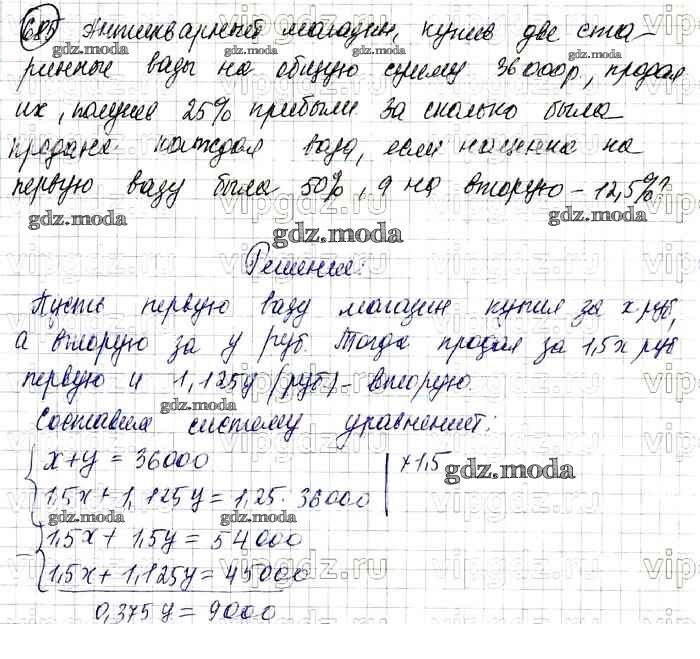 685 Антикварный магазин, купив две ста-
ринные вазы на общую сумму 36000р, продал
их, получив 25% прибыли. За сколько была
продана каждая ваза, если наценка на
первую вазу была 50%, а на вторую – 12,5%?
gdz.moda gdz.moda gdz.moda
Решение:
Пусть первую вазу магазин купил за x руб,
а вторую за y руб. Тогда продал за 1,5x руб
первую и 1,125y (руб.) – вторую.
gdz.moda
Составим систему уравнений:
x+y = 36000 | × 1,5
gdz.moda gdz.moda
1,5x + 1,125y = 1,25 · 36000
gdz.moda gdz.moda
1,5x + 1,5y = 54000
1,5x + 1,125y = 45000
gdz.moda
0,375y = 9000